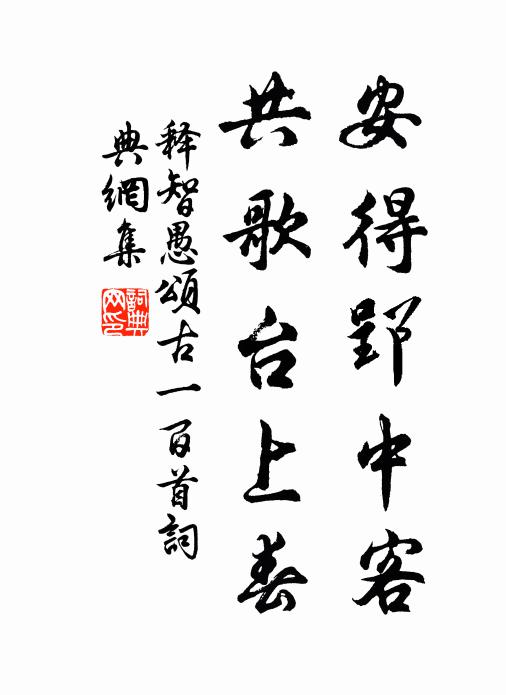 安得郢中客
共歌台上春
释智愚頌古一百首詞
典網集
詞典網印